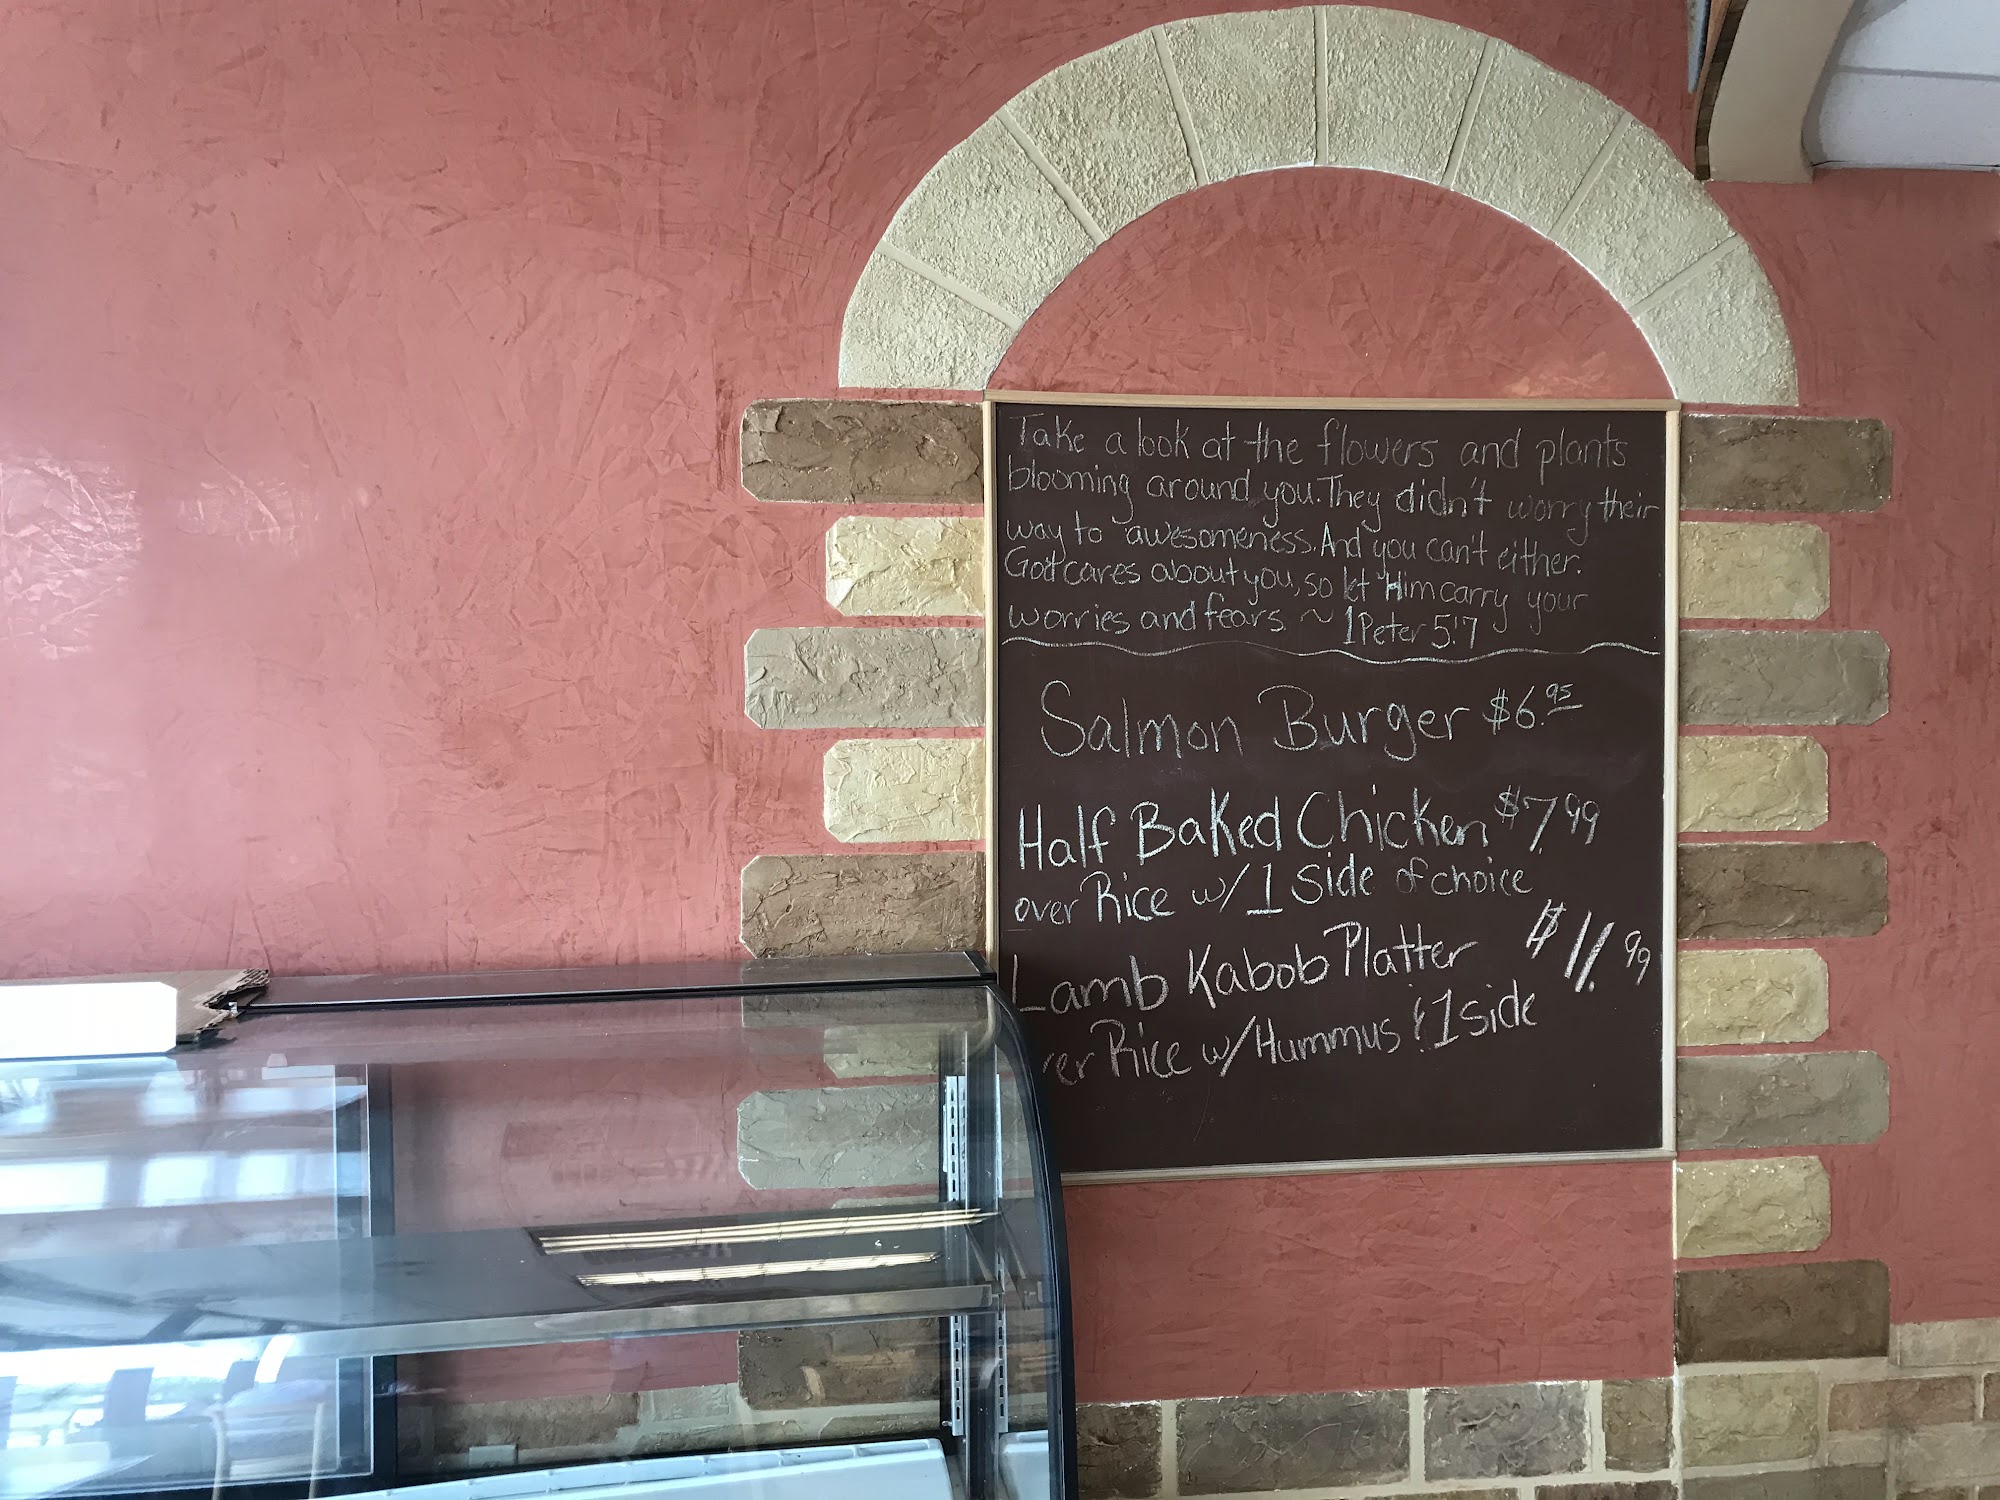 Take a look at the flowers and plants
blooming around you. They didn't worry their
way to awesomeness. And you can't either.
God cares about you, so let Him carry your
worries and fears. ~ 1 Peter 5:7
Salmon Burger $6.95
Half Baked Chicken $7.99
over Rice w/ 1 side of choice
Lamb Kabob Platter $11.99
ver Rice w/ Hummus & 1 side